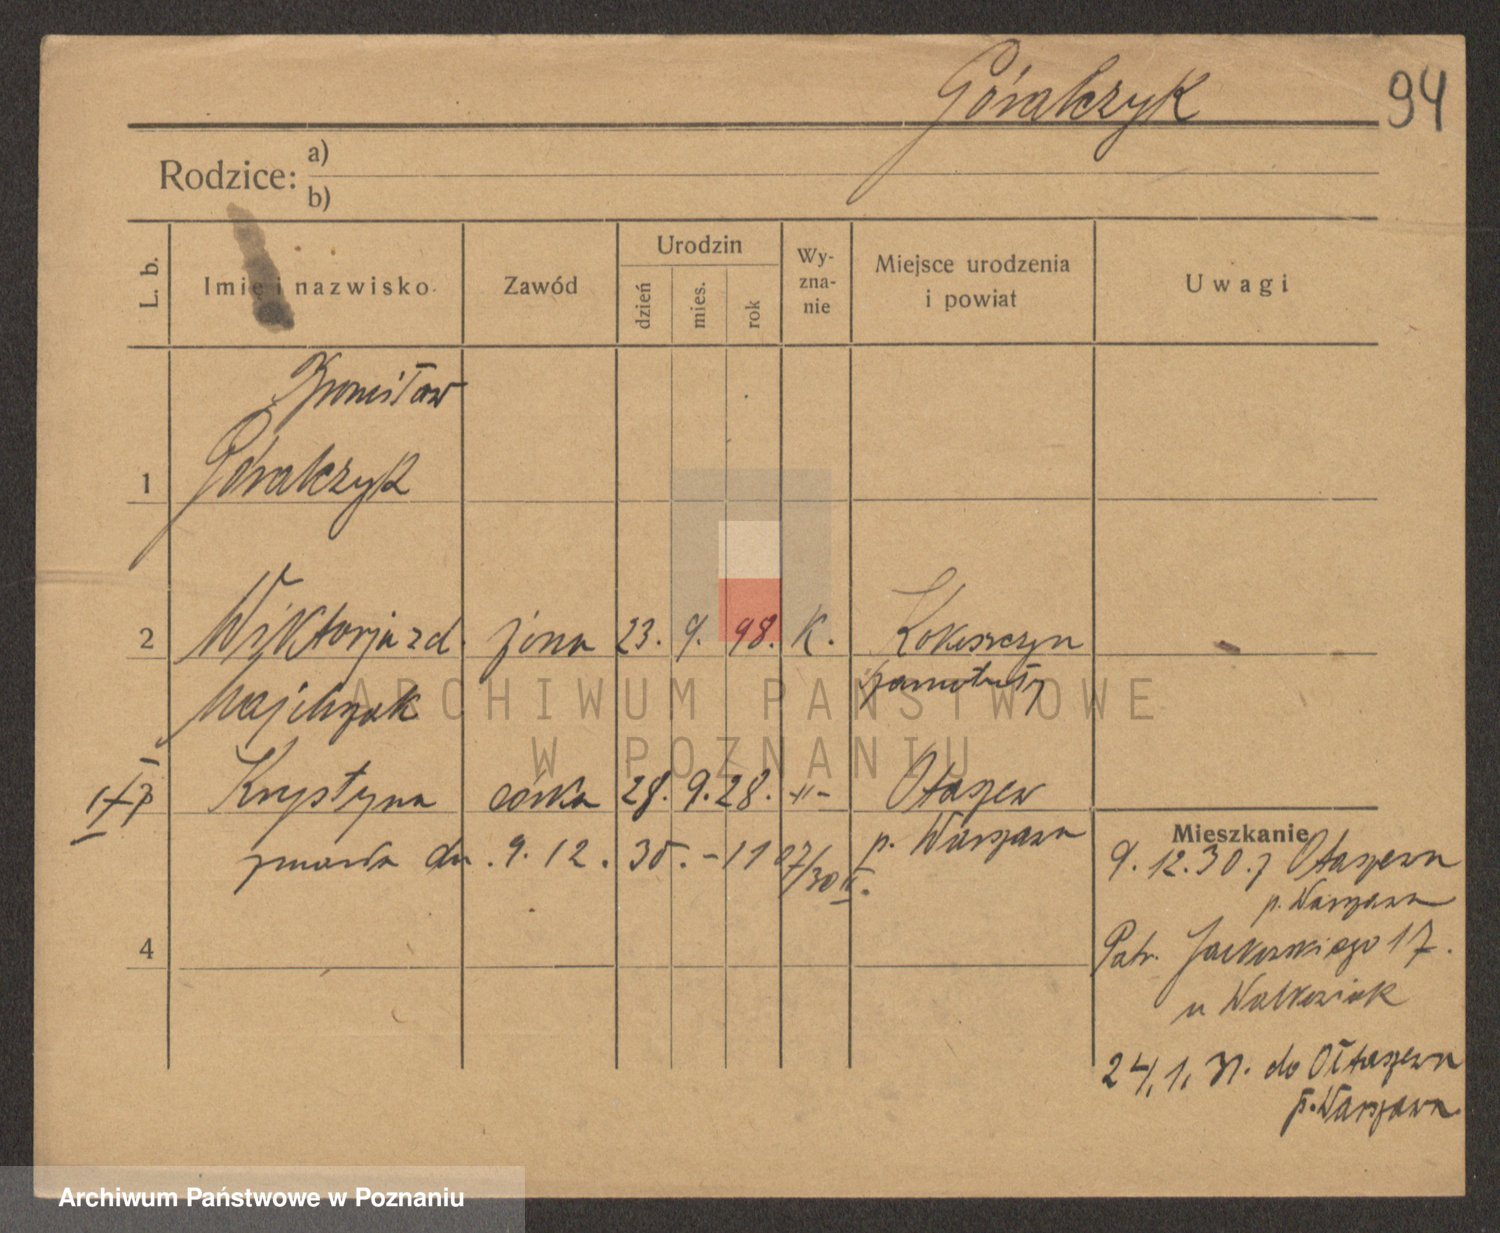 Góralczyk 94
Rodzice: a)
b)
L. b. Imię i nazwisko Zawód Urodzin dzień mies. rok Wy- zna- nie Miejsce urodzenia i powiat Uwagi
Bronisław
1 Góralczyk
2 Wiktorja zd. żona 23. 9. 98. K. Kokoszczyn
Majchrzak Szamotuły
ARCHIWUM PAŃSTWOWE
W POZNANIU
3 Krystyna córka 28. 9. 28. -"- Ołtaszew
p. Warszawa
Mieszkanie
zmarła dn. 9. 12. 30.
9. 12. 30. z Ołtaszewa
p. Warszawa
4
Patr. Jackowskiego 17.
u Walkowiak
24. 1. 31. do Ołtaszewa
p. Warszawa
Archiwum Państwowe w Poznaniu